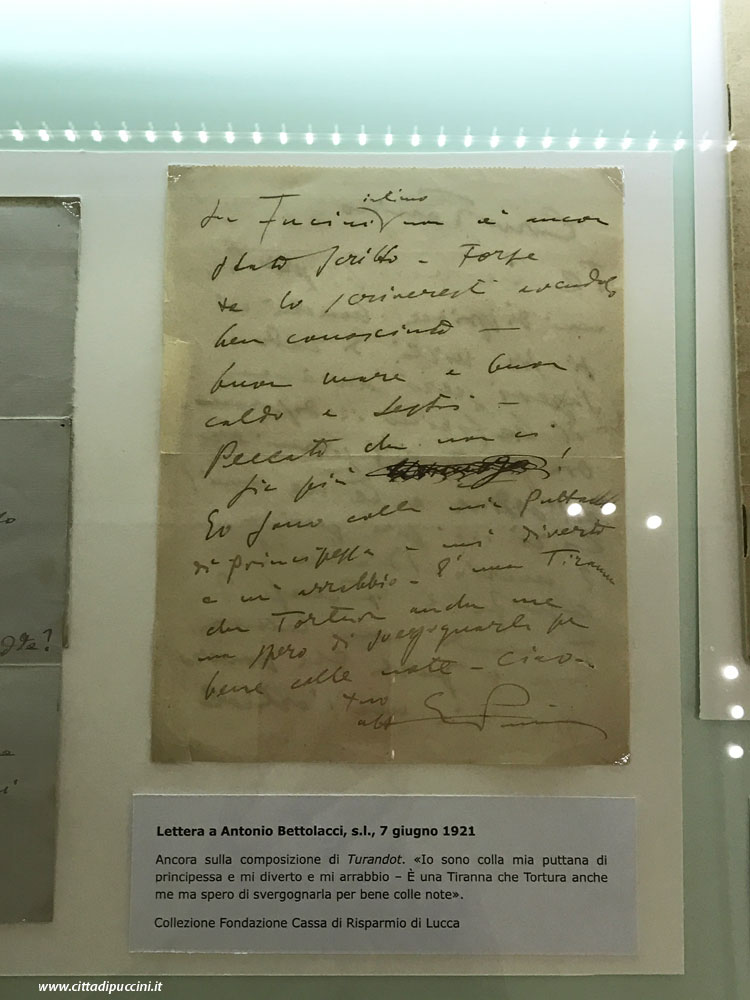 intimo
Su Fucini non è ancor
stato scritto – Forse
tu lo scriveresti avendolo
ben conosciuto –
buon mare e buon
caldo e
Peccato che non ci
sia più !
Io sono colla mia puttana
di principessa e mi diverto
e mi arrabbio – È una Tiranna
che Tortura anche me
ma spero di svergognarla per
bene colle note – Ciao –
tuo
G Puccini
Lettera a Antonio Bettolacci, s.l., 7 giugno 1921
Ancora sulla composizione di Turandot. «Io sono colla mia puttana di
principessa e mi diverto e mi arrabbio – È una Tiranna che Tortura anche
me ma spero di svergognarla per bene colle note».
Collezione Fondazione Cassa di Risparmio di Lucca
www.cittadipuccini.it